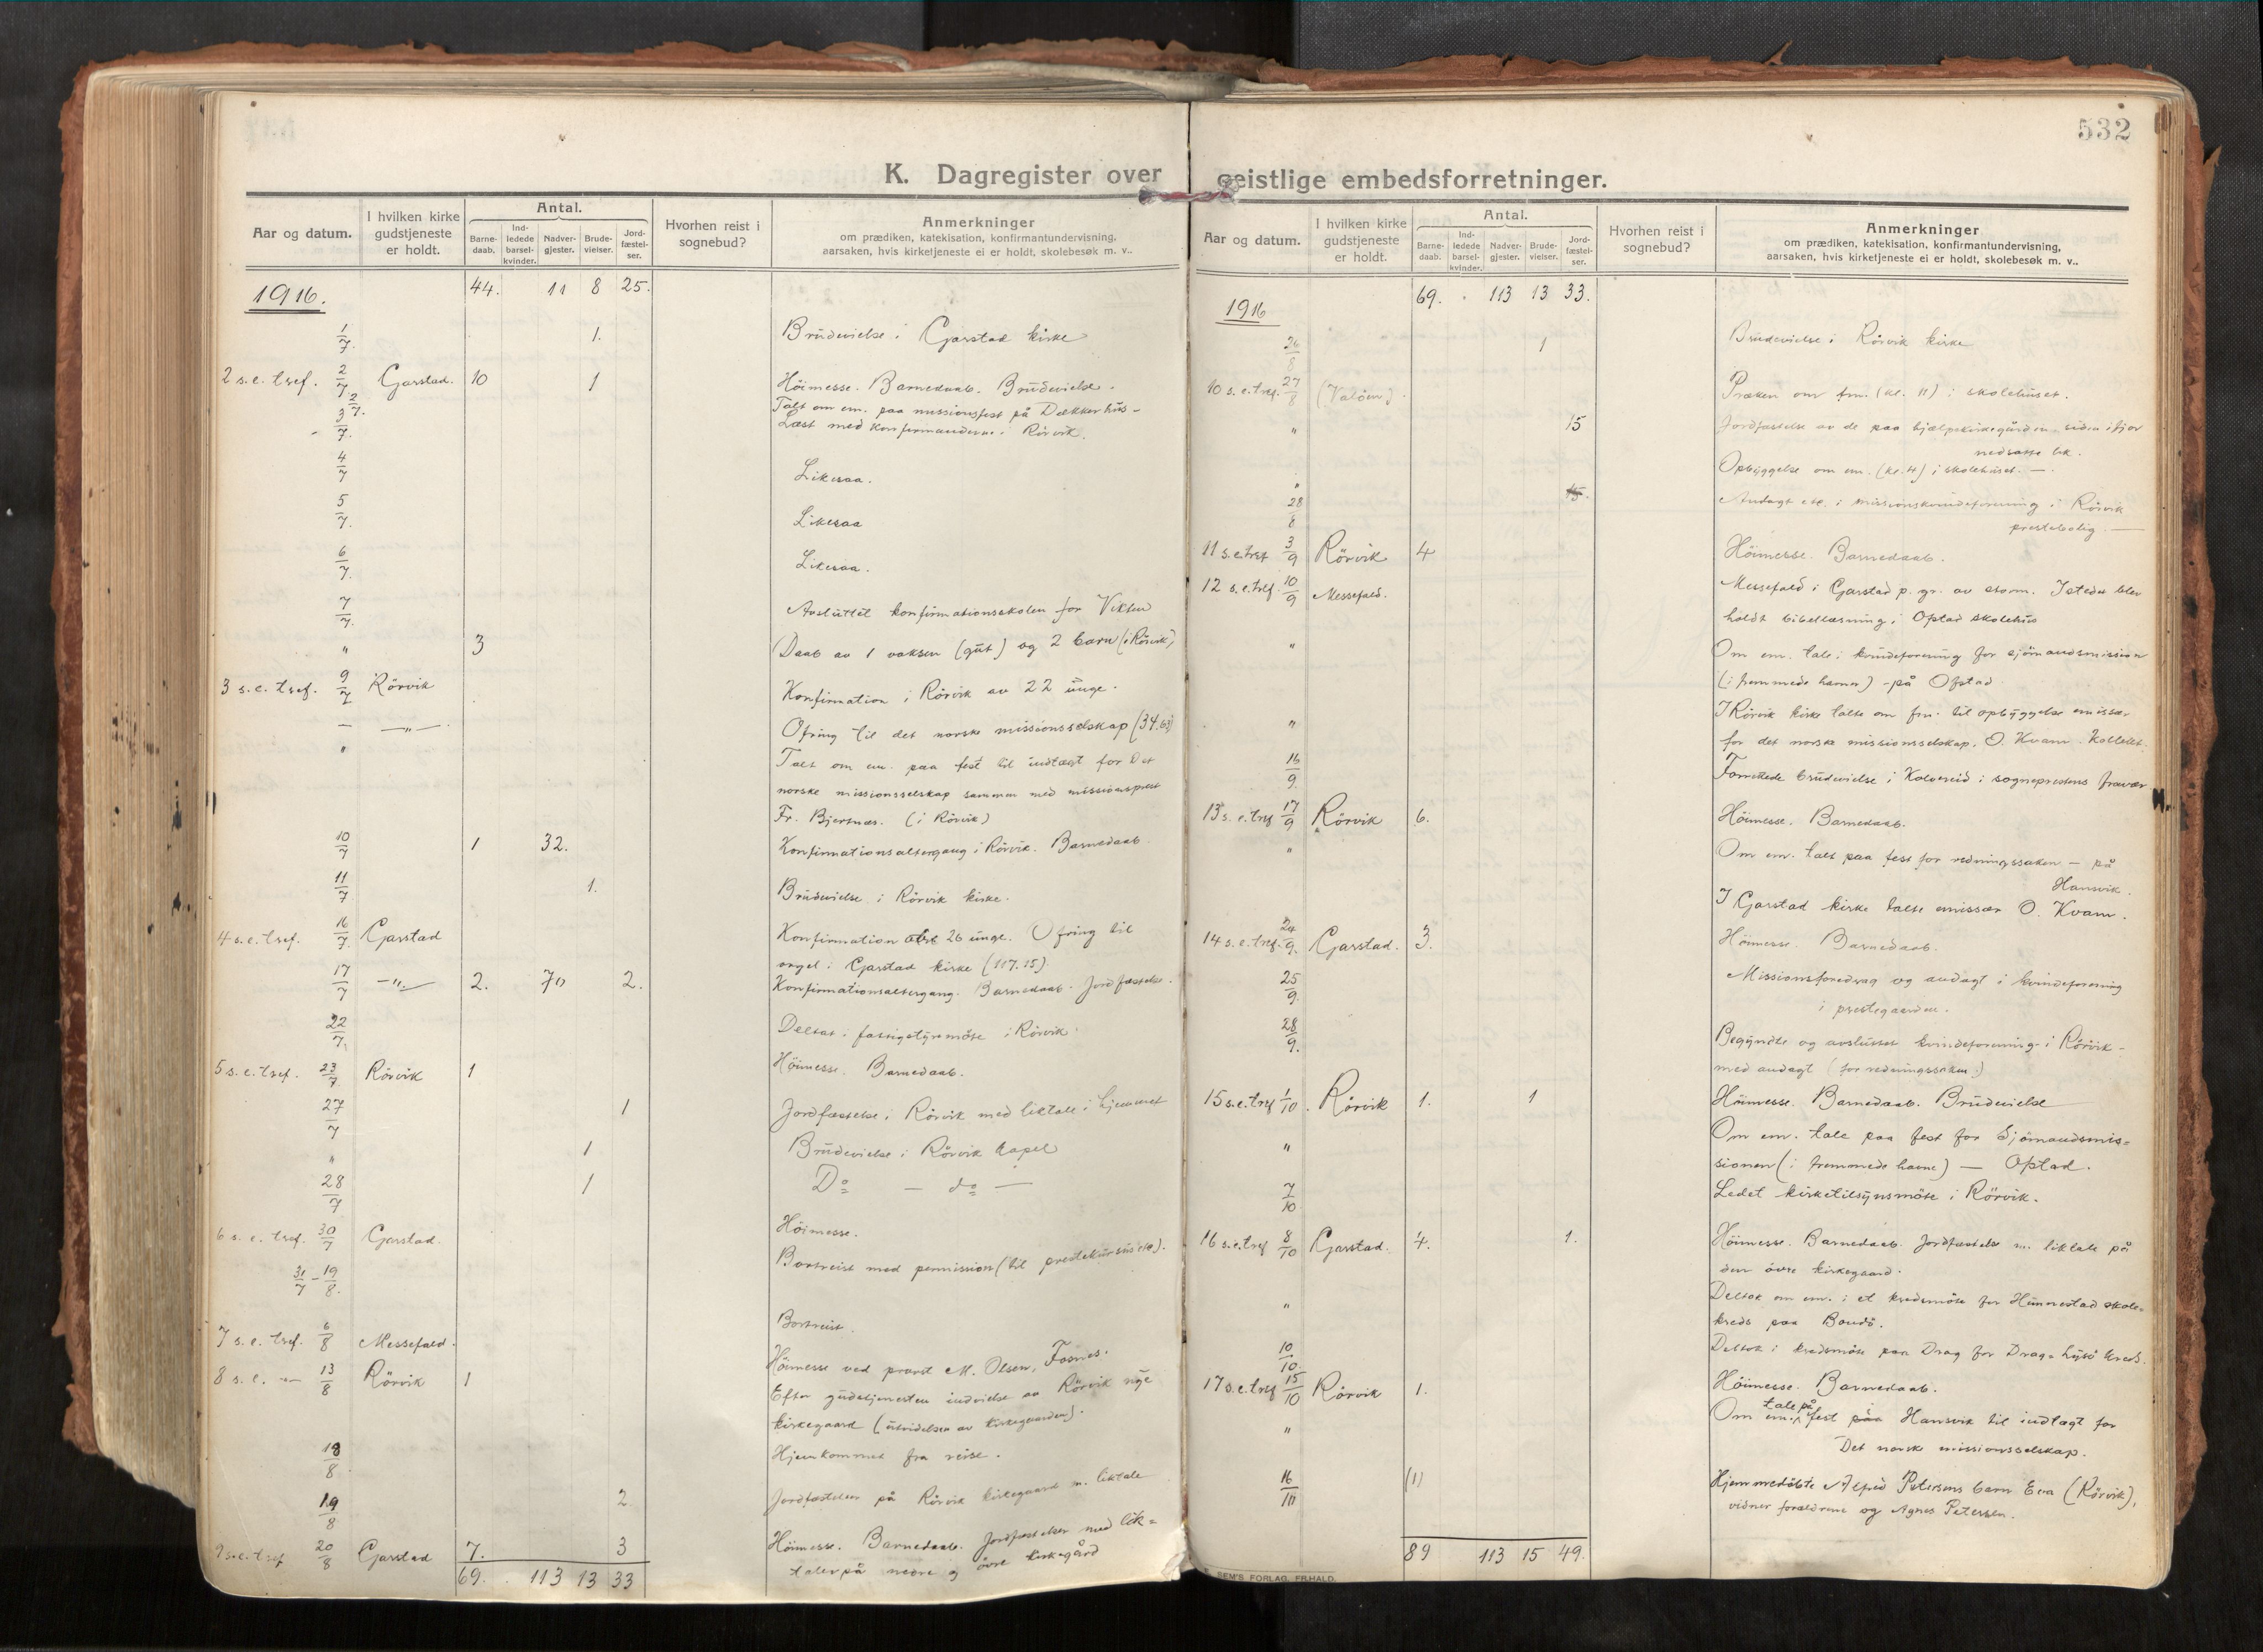 532
K. Dagregister over geistlige embedsforretninger.
Aar og datum.
I hvilken kirke gudstjeneste er holdt.
Antal.
Barne-daab.
Ind-ledede barsel-kvinder.
Nadver-gjester.
Brude-vielser.
Jord-fæstel-ser.
Hvorhen reist i sognebud?
Anmerkninger
om prædiken, katekisation, konfirmantundervisning,
aarsaken, hvis kirketjeneste ei er holdt, skolebesøk m. v..
1916. 44. 11 8 25.
1/7. 1. Brudevielse i Garstad kirke
2 s.e. tref. 2/7 Garstad. 10 1 Høimesse. Barnedaab. Brudevielse.
2/7. Talt om em. paa missionsfest på Dækkerhus -
3/7. Læst med konfirmanderne i Rörvik.
4/7 Likesaa.
5/7. Likesaa
6/7. Likesaa.
7/7. Avsluttet konfirmationsskolen for Vikten
" 3 Daab av 1 voksen (gut) og 2 barn (i Rörvik)
3 s.e. tref. 9/7 Rörvik Konfirmation i Rörvik av 22 unge.
— —"— Ofring til det norske missionsselskap (34.63)
" Talt om em. paa fest til indtægt for Det
norske missionsselskap sammen med missionsprest
Fr. Bjertnæs. (i Rörvik)
10/7 1 32. Konfirmationsaltergang i Rörvik. Barnedaab
11/7 1. Brudevielse i Rörvik kirke.
4 s.e. tref. 16/7. Garstad Konfirmation 26 unge. Ofring til
orgel i Garstad kirke (117.15)
17/7 —"— 2. 70 2. Konfirmationsaltergang. Barnedaab. Jordfæstelse.
22/7. Deltat i fattigstyremöte i Rörvik.
5 s.e. tref. 23/7. Rörvik 1 Höimesse. Barnedaab.
27/7 1 Jordfæstelse i Rörvik med liktale i hjemmet
" 1 Brudevielse i Rörvik kapel
28/7 1 Do — do —
6 s.e. tref. 30/7 Garstad. Höimesse.
31/7 - 19/8. Bortreist med permission (til prestekursus etc).
7 s.e. tref. 6/8 Messefald. Bortreist.
8 s.e. — 13/8 Rörvik 1 Höimesse ved provst M. Olsen, Fosnes.
Efter gudstjenesten indvielse av Rörvik nye
kirkegaard (utvidelsen av kirkegaarden).
18/8. Hjemkommet fra reise.
19/8 2 Jordfæstelser på Rörvik kirkegaard m. liktale
9 s.e. tref 20/8 Garstad 7. 3 Höimesse. Barnedaab. Jordfæstelser med lik=
taler på nedre og övre kirkegård
69. 113 13 33
Aar og datum.
I hvilken kirke gudstjeneste er holdt.
Antal.
Barne-daab.
Ind-ledede barsel-kvinder.
Nadver-gjester.
Brude-vielser.
Jord-fæstel-ser.
Hvorhen reist i sognebud?
Anmerkninger
om prædiken, katekisation, konfirmantundervisning,
aarsaken, hvis kirketjeneste ei er holdt, skolebesøk m. v..
1916 69. 113 13 33.
26/8 1 Brudevielse i Rörvik kirke
10 s.e. tref. 27/8 (Valöen). Præken om fm. (kl. 11) i skolehuset.
" 15 Jordfæstelse av de paa hjælpekirkegården siden ifjor
nedsatte lik.
" 15. Opbyggelse om em. (kl. 4) i skolehuset. —
28/8 Andagt etc. i missionskvindeforening i Rörvik
prestebolig. —
11 s.e. tref 3/9 Rörvik 4 Höimesse. Barnedaab.
12 s.e. tref. 10/9 Messefald. Messefald i Garstad p. gr. av storm. Istedet blev
holdt bibellæsning i Opstad skolehus
" Om em. tale i kvindeforening for sjömandsmission
(i fremmede havner) - på Ofstad
" I Rörvik kirke talte om fm. til opbyggelse emissær
for det norske missionsselskap, O. Kvam. Kollekt.
16/9. Forrettede brudevielse i Kolvereid i sogneprestens fravær
13 s.e. tref 17/9 Rörvik 6. Höimesse. Barnedaab.
" Om em. talt paa fest for redningssaken — på
Hansvik.
I Garstad kirke talte emissær O. Kvam.
14 s.e. tref. 24/9. Garstad. 3. Höimesse. Barnedaab.
25/9. Missionsforedrag og andagt i kvindeforening
i prestegaarden.
28/9. Begyndte og avsluttet kvindeforening i Rörvik -
med andagt (for redningssaken.)
15 s.e. tref 1/10. Rörvik 1. 1 Höimesse. Barnedaab. Brudevielse
" Om em. tale paa fest for Sjömandsmis=
sionen (i fremmede havne) — Opstad.
7/10 Ledet kirketilsynsmöte i Rörvik.
16 s.e. tref 8/10 Garstad. 4. 1. Höimesse. Barnedaab. Jordfæstelse m. liktale på
den övre kirkegaard.
" Deltok om em. i et kredsmöte for Hunnestad skole=
kreds paa Bondö.
10/10 Deltok i kredsmöte paa Drag for Drag= kreds.
17 s.e. tref 15/10 Rörvik 1. Höimesse. Barnedaab.
" Om em. tale på fest paa Hansvik til indtægt for
Det norsk missionsselskap.
16/10 (1) Hjemmedöbte Alfred Petersens barn Eva (Rörvik),
vidner forældrene og Agnes Petersen.
89 113 15 49.
SEM'S FORLAG, FR.HALD.